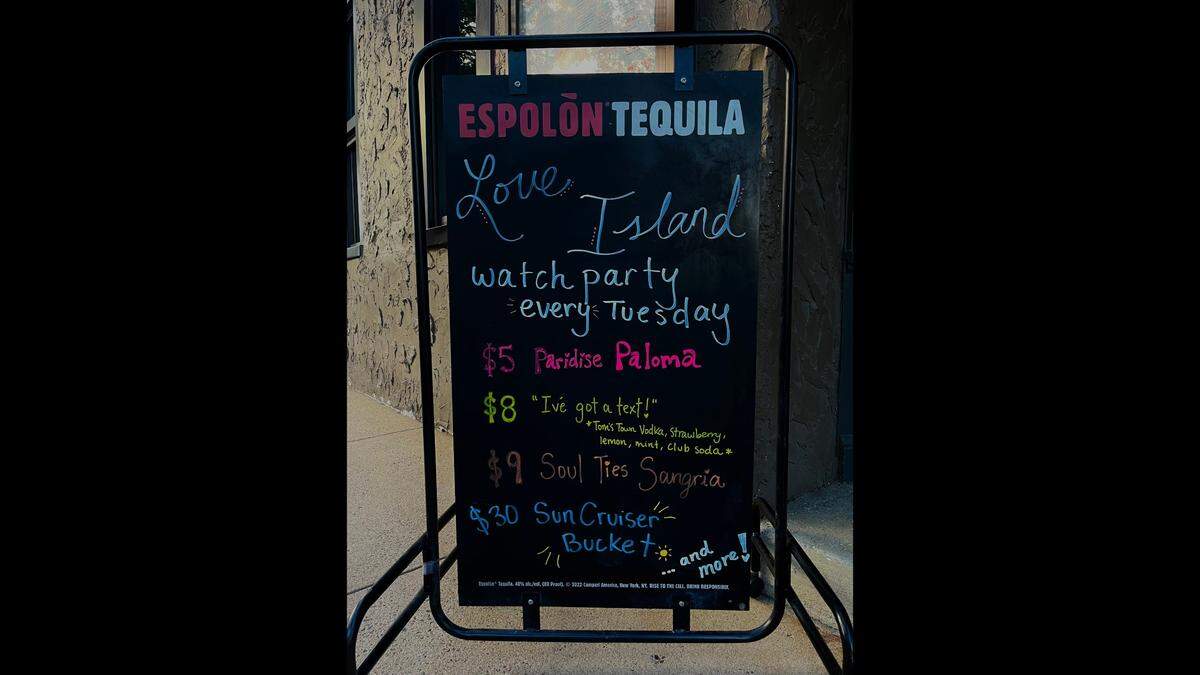 ESPOLÒN® TEQUILA
Love
Island
watch party
every Tuesday
$5 Paridise Paloma
$8 "I've got a text!"
*Tom's Town Vodka, Strawberry,
lemon, mint, club soda*
$9 Soul Ties Sangria
$30 Sun Cruiser
Bucket
... and
more!
Espolòn® Tequila. 40% alc./vol. (80 Proof). © 2022 Campari America, New York, NY. RISE TO THE CALL. DRINK RESPONSIBLY.